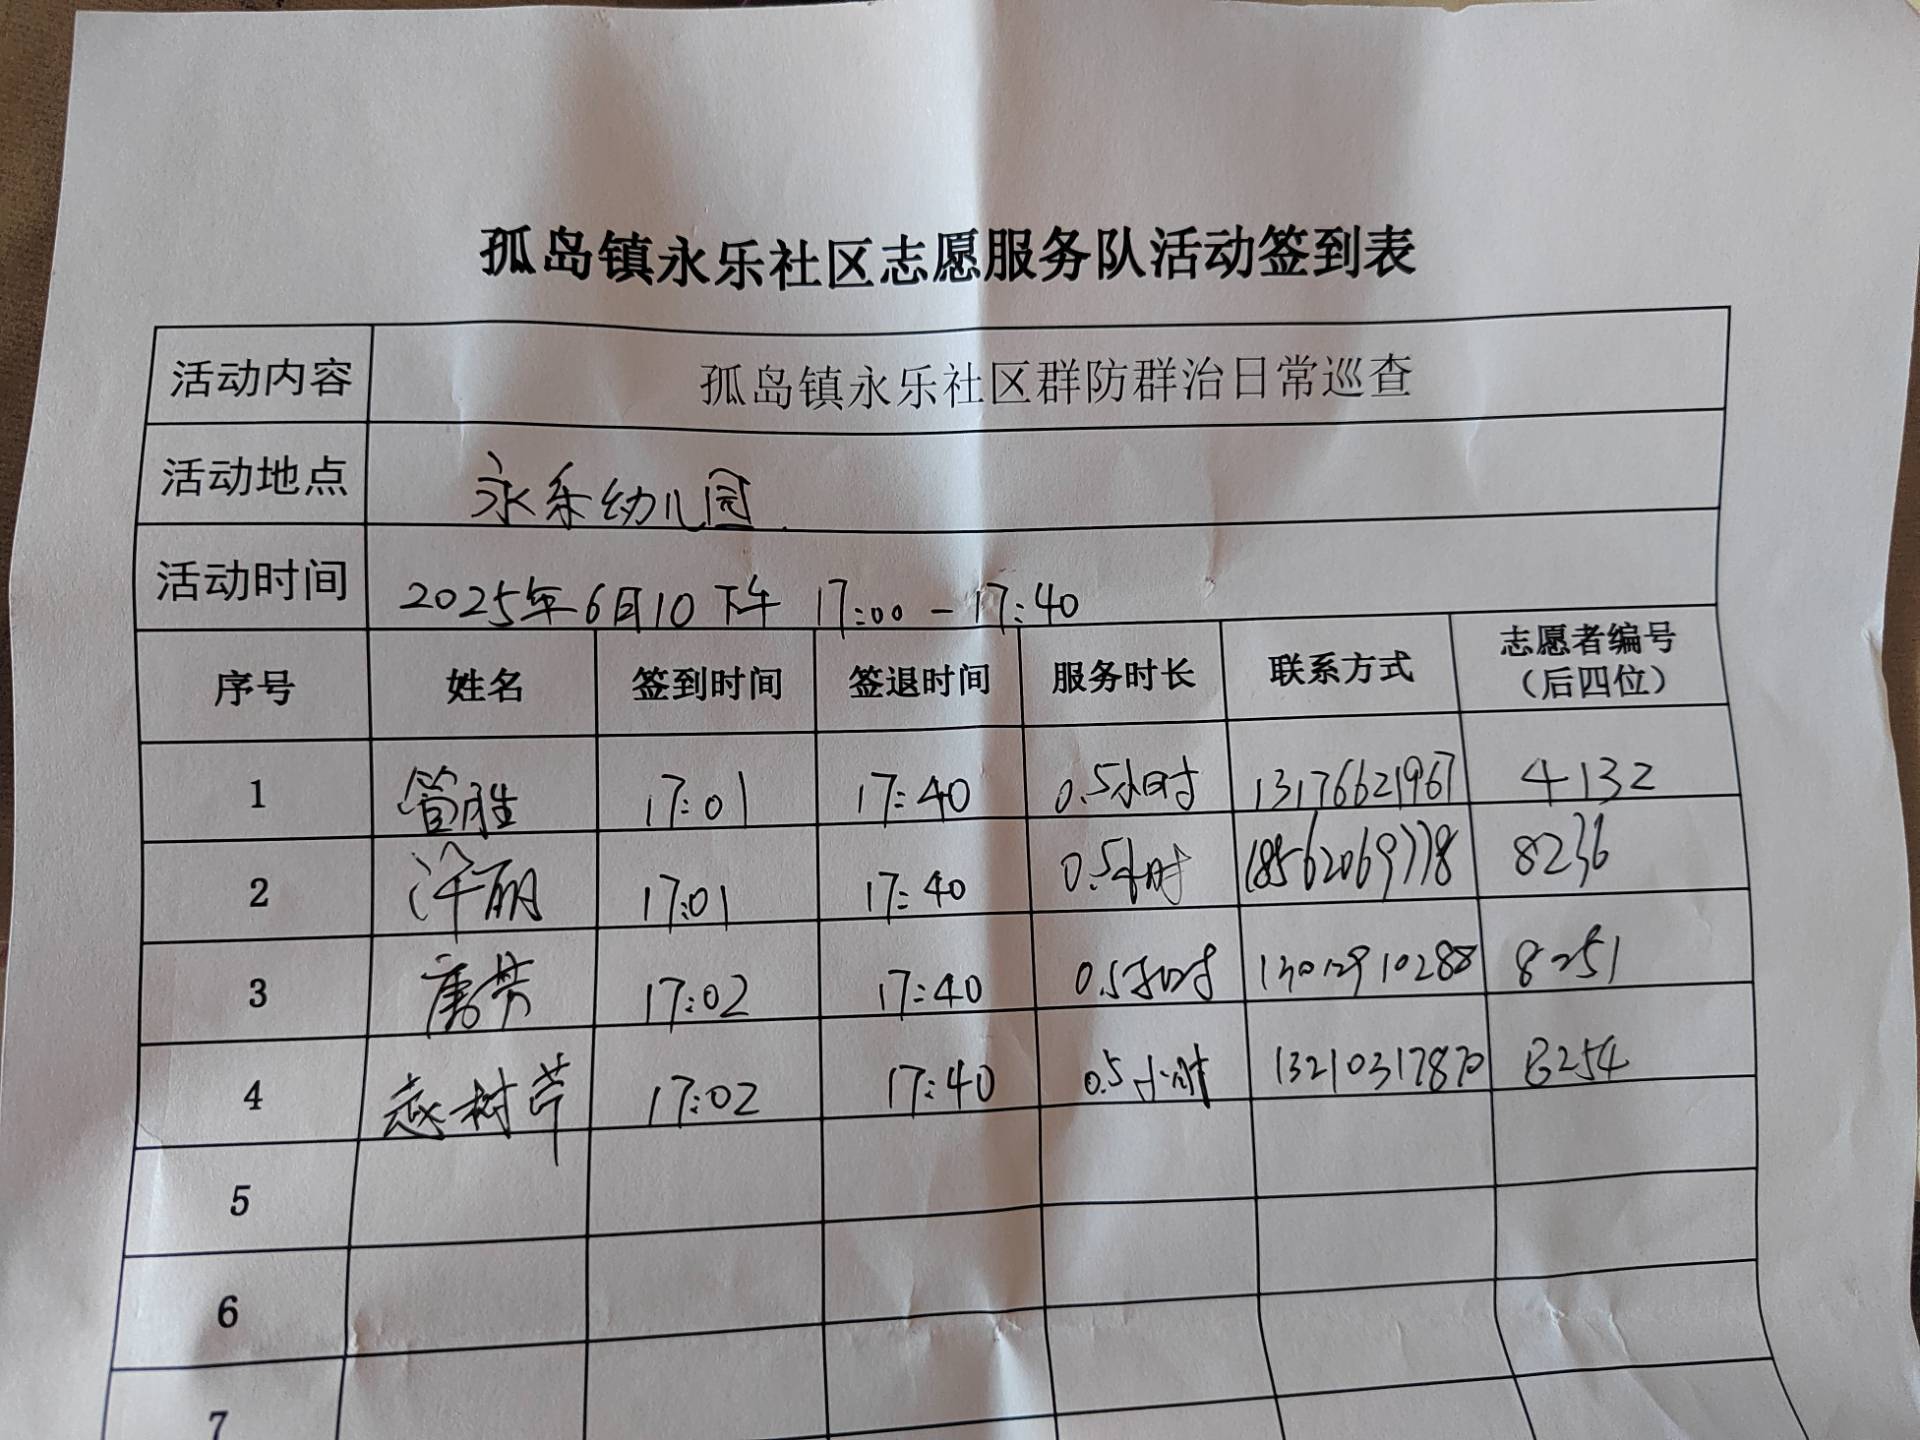 孤岛镇永乐社区志愿服务队活动签到表
活动内容 孤岛镇永乐社区群防群治日常巡查
活动地点 永乐幼儿园
活动时间 2025年6月10下午 17:00-17:40
序号 姓名 签到时间 签退时间 服务时长 联系方式 志愿者编号（后四位）
1 管胜 17:01 17:40 0.5小时 13176621967 4132
2 17:01 17:40 0.5小时 18562069778 8236
3 唐芳 17:02 17:40 0.5小时 13012910288 8251
4 树芹 17:02 17:40 0.5小时 13210317870 8254
5
6
7